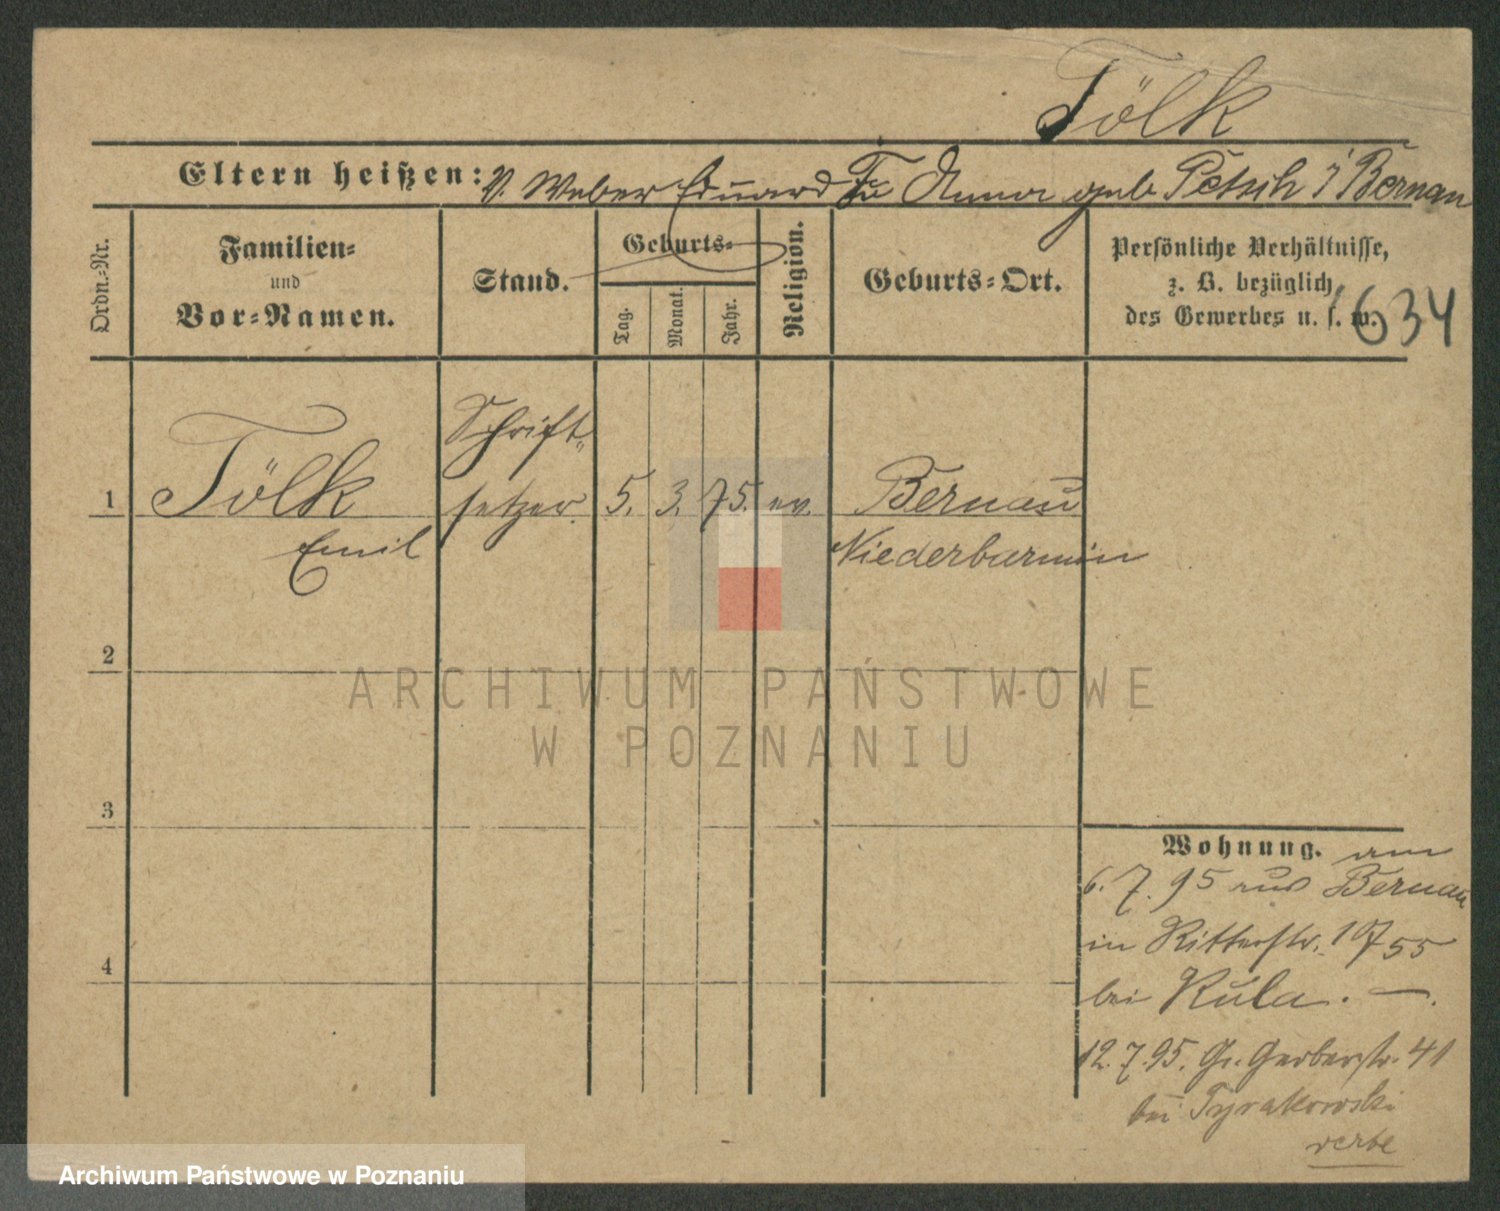 Tölk
Eltern heißen: V. Weber Eduard Tu Anna geb Petsch i/ Bernau
Ordn.-Nr.
Familien-
und
Vor-Namen.
Stand.
Geburts-
Tag.
Monat.
Jahr.
Religion.
Geburts-Ort.
Persönliche Verhältnisse,
z. B. bezüglich
des Gewerbes u. s. w.
1634
1
Tölk
Emil
Schrift-
setzer.
5. 3. 75. ev.
Bernau
Niederbarnim
2
3
4
Wohnung. am
6. 7. 95 aus Bernau
in Ritterstr. 
bei Kula. —.
12. 7. 95. Gr. Gerberstr. 41
bei Tyrakowski
ARCHIWUM PAŃSTWOWE
W POZNANIU
Archiwum Państwowe w Poznaniu